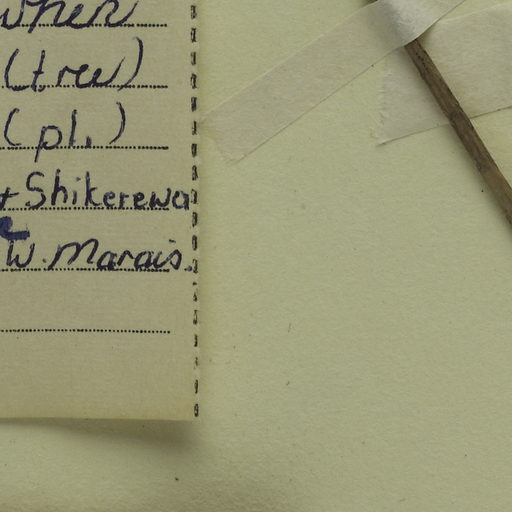 when
(tree)
(pl.)
+ Shikerewa
W. Marais.